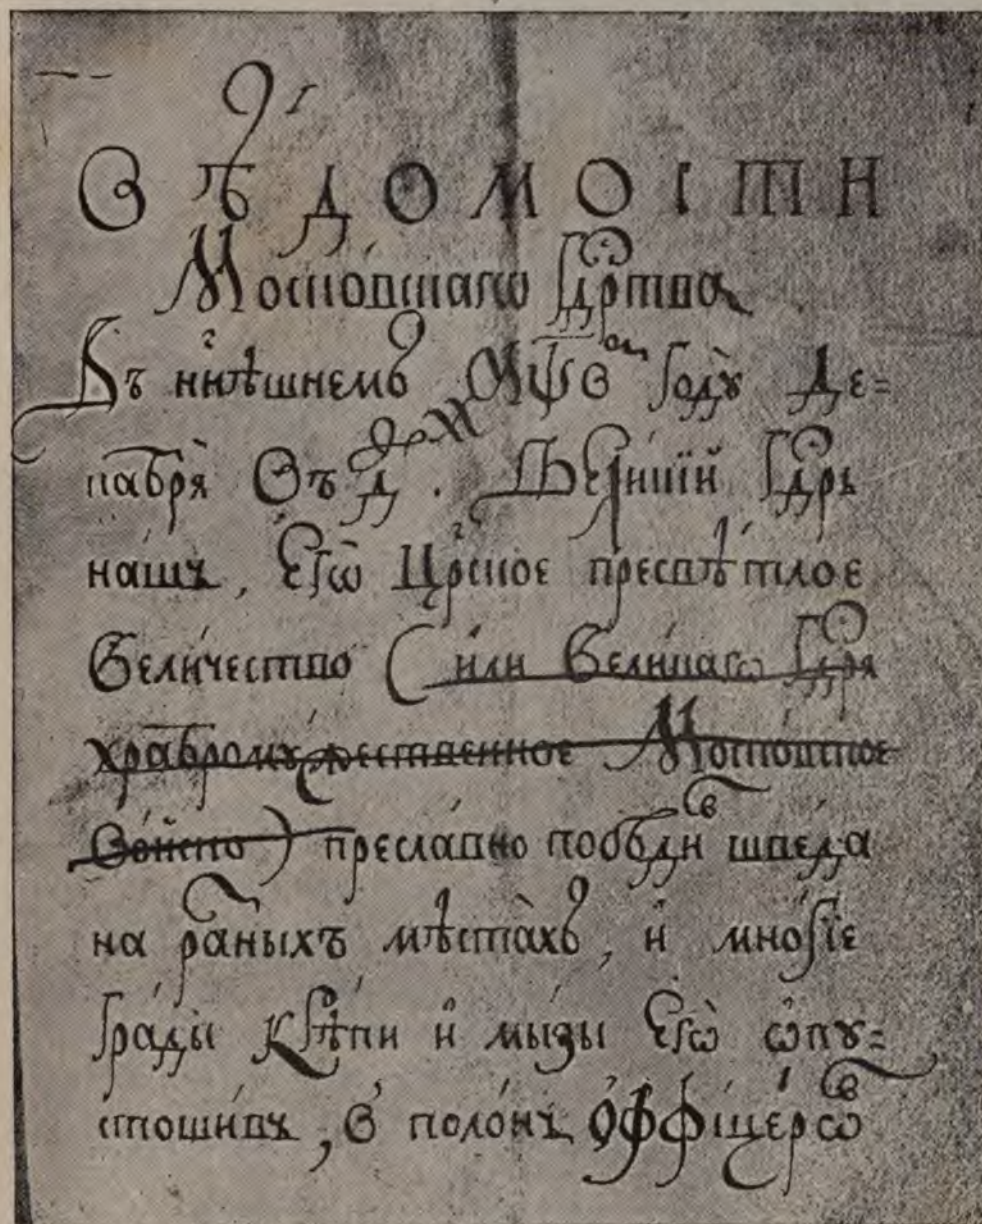 ВѢДОМОСТИ
Московскагѡ Гдртва
Въ нн҃ѣшнемъ ҂аѱв Году Де=
кабря̀ Въ д҃. Великїй Гдрь
нашъ, Егѡ̀ Црское пресвѣтлое
Величество (или Великагѡ Гдря
храбромужественное Московское
Войско) преславно побѣди в шведа
на раных мѣстахъ, и многїе
грады крѣпки и мызы Егѡ̀ ѡпу=
стошивъ, в полонъ Оффіцерѡв